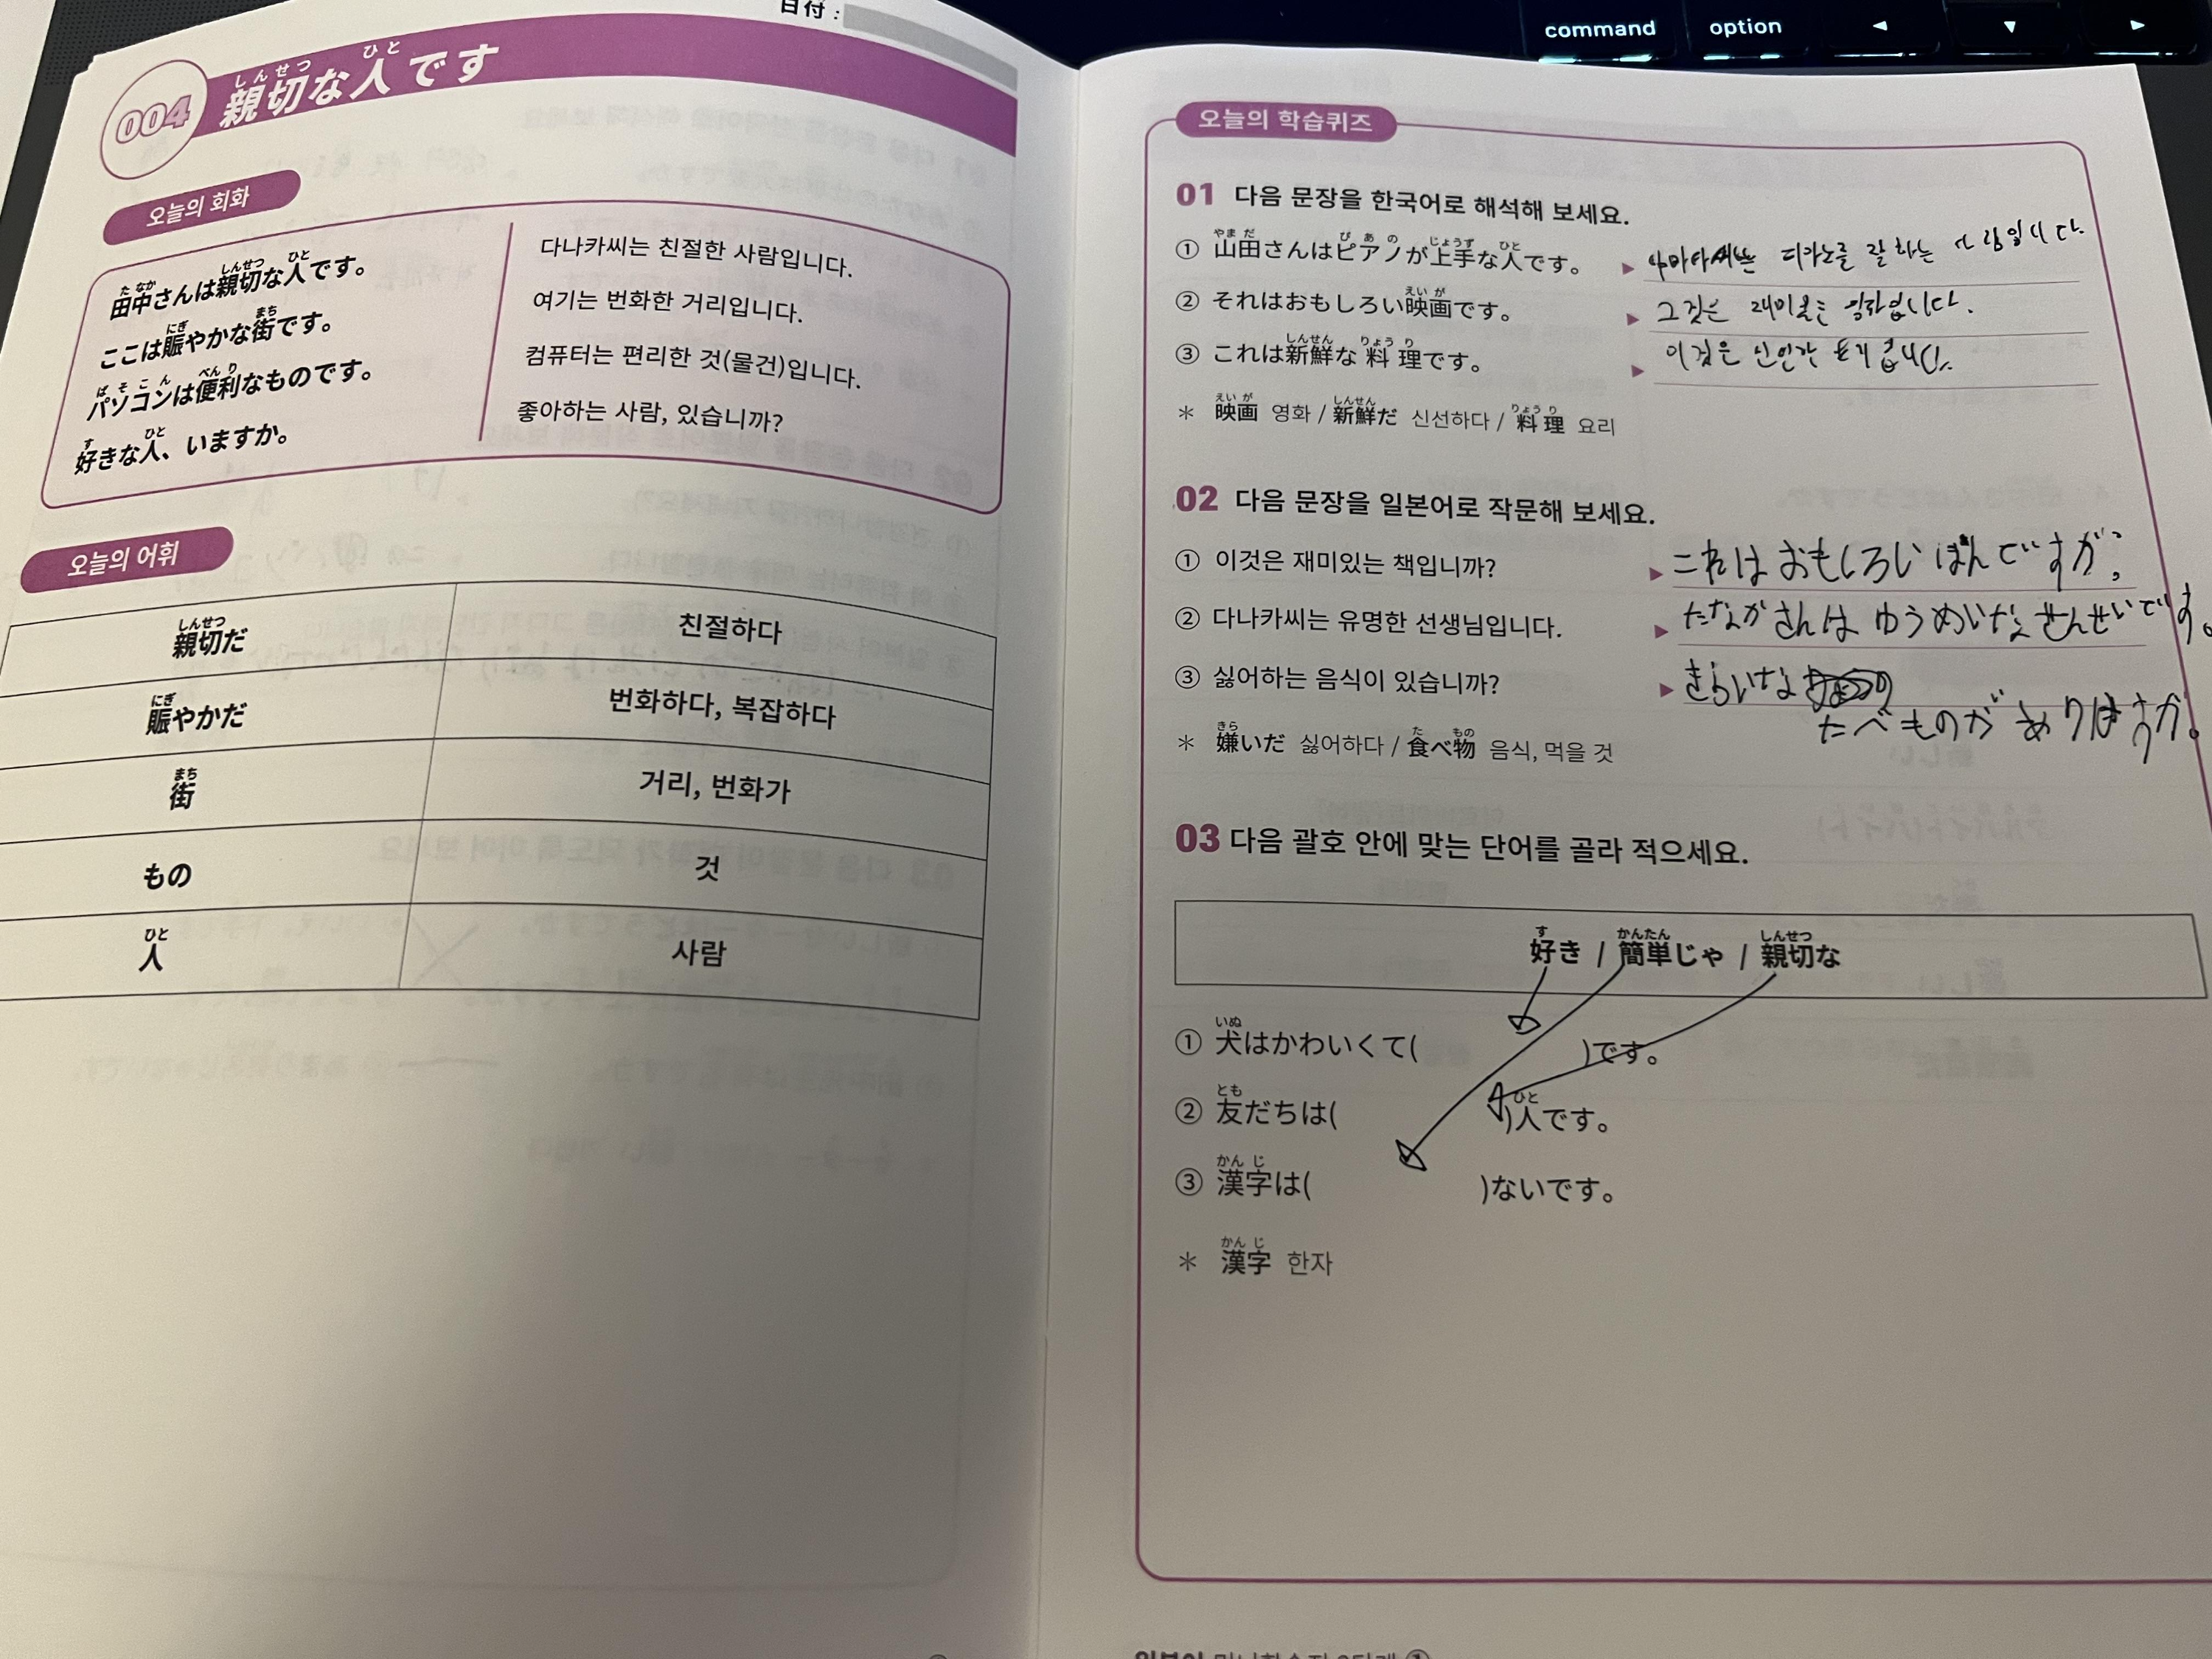 command
option
◄
▼
►
日付 :
004
しんせつ ひと
親切な人です
오늘의 회화
た なか しんせつ ひと
田中さんは親切な人です。
にぎ まち
ここは賑やかな街です。
ぱ そ こ ん べん り
パソコンは便利なものです。
す ひと
好きな人、いますか。
다나카씨는 친절한 사람입니다.
여기는 번화한 거리입니다.
컴퓨터는 편리한 것(물건)입니다.
좋아하는 사람, 있습니까?
오늘의 어휘
しんせつ
親切だ 친절하다
にぎ
賑やかだ 번화하다, 복잡하다
まち
街 거리, 번화가
もの 것
ひと
人 사람
오늘의 학습퀴즈
01 다음 문장을 한국어로 해석해 보세요.
やま だ ぴ あ の じょうず ひと
① 山田さんはピアノが上手な人です。 ▶ 야마다씨는 피아노를 잘 하는 사람입니다.
えい が
② それはおもしろい映画です。 ▶ 그것은 재미있는 영화입니다.
しんせん りょう り
③ これは新鮮な料理です。 ▶ 이것은
えい が しんせん りょう り
＊ 映画 영화 / 新鮮だ 신선하다 / 料理 요리
02 다음 문장을 일본어로 작문해 보세요.
① 이것은 재미있는 책입니까? ▶ これは おもしろい ほんですか?
② 다나카씨는 유명한 선생님입니다. ▶ たなかさんは ゆうめいな せんせいです。
③ 싫어하는 음식이 있습니까? ▶ きらいな
たべものが ありますか。
きら た もの
＊ 嫌いだ 싫어하다 / 食べ物 음식, 먹을 것
03 다음 괄호 안에 맞는 단어를 골라 적으세요.
す かんたん しんせつ
好き / 簡単じゃ / 親切な
いぬ
① 犬はかわいくて( )です。
とも ひと
② 友だちは( )人です。
かん じ
③ 漢字は( )ないです。
かん じ
＊ 漢字 한자